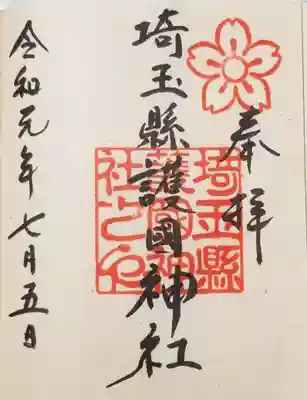 奉拝
埼玉縣護國神社
埼玉縣
護國神
社之印
令和元年七月五日